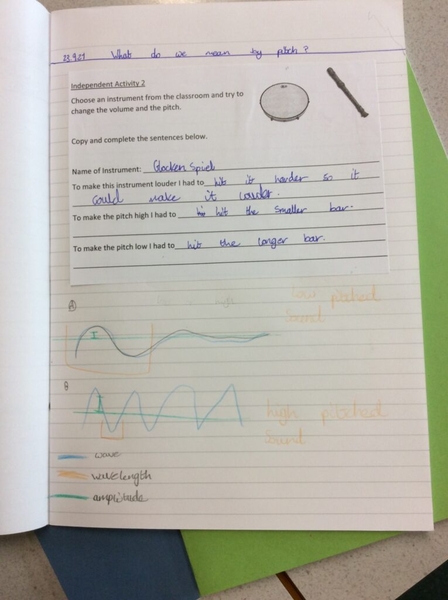 23.9.21 What do we mean by pitch?
Independent Activity 2
Choose an instrument from the classroom and try to
change the volume and the pitch.
Copy and complete the sentences below.
Name of Instrument: Glocken Spiel
To make this instrument louder I had to hit it harder so it
could make it louder.
To make the pitch high I had to hit the smaller bar.
To make the pitch low I had to hit the longer bar.
low pitched
sound
high pitched
sound
wave
wavelength
amplitude